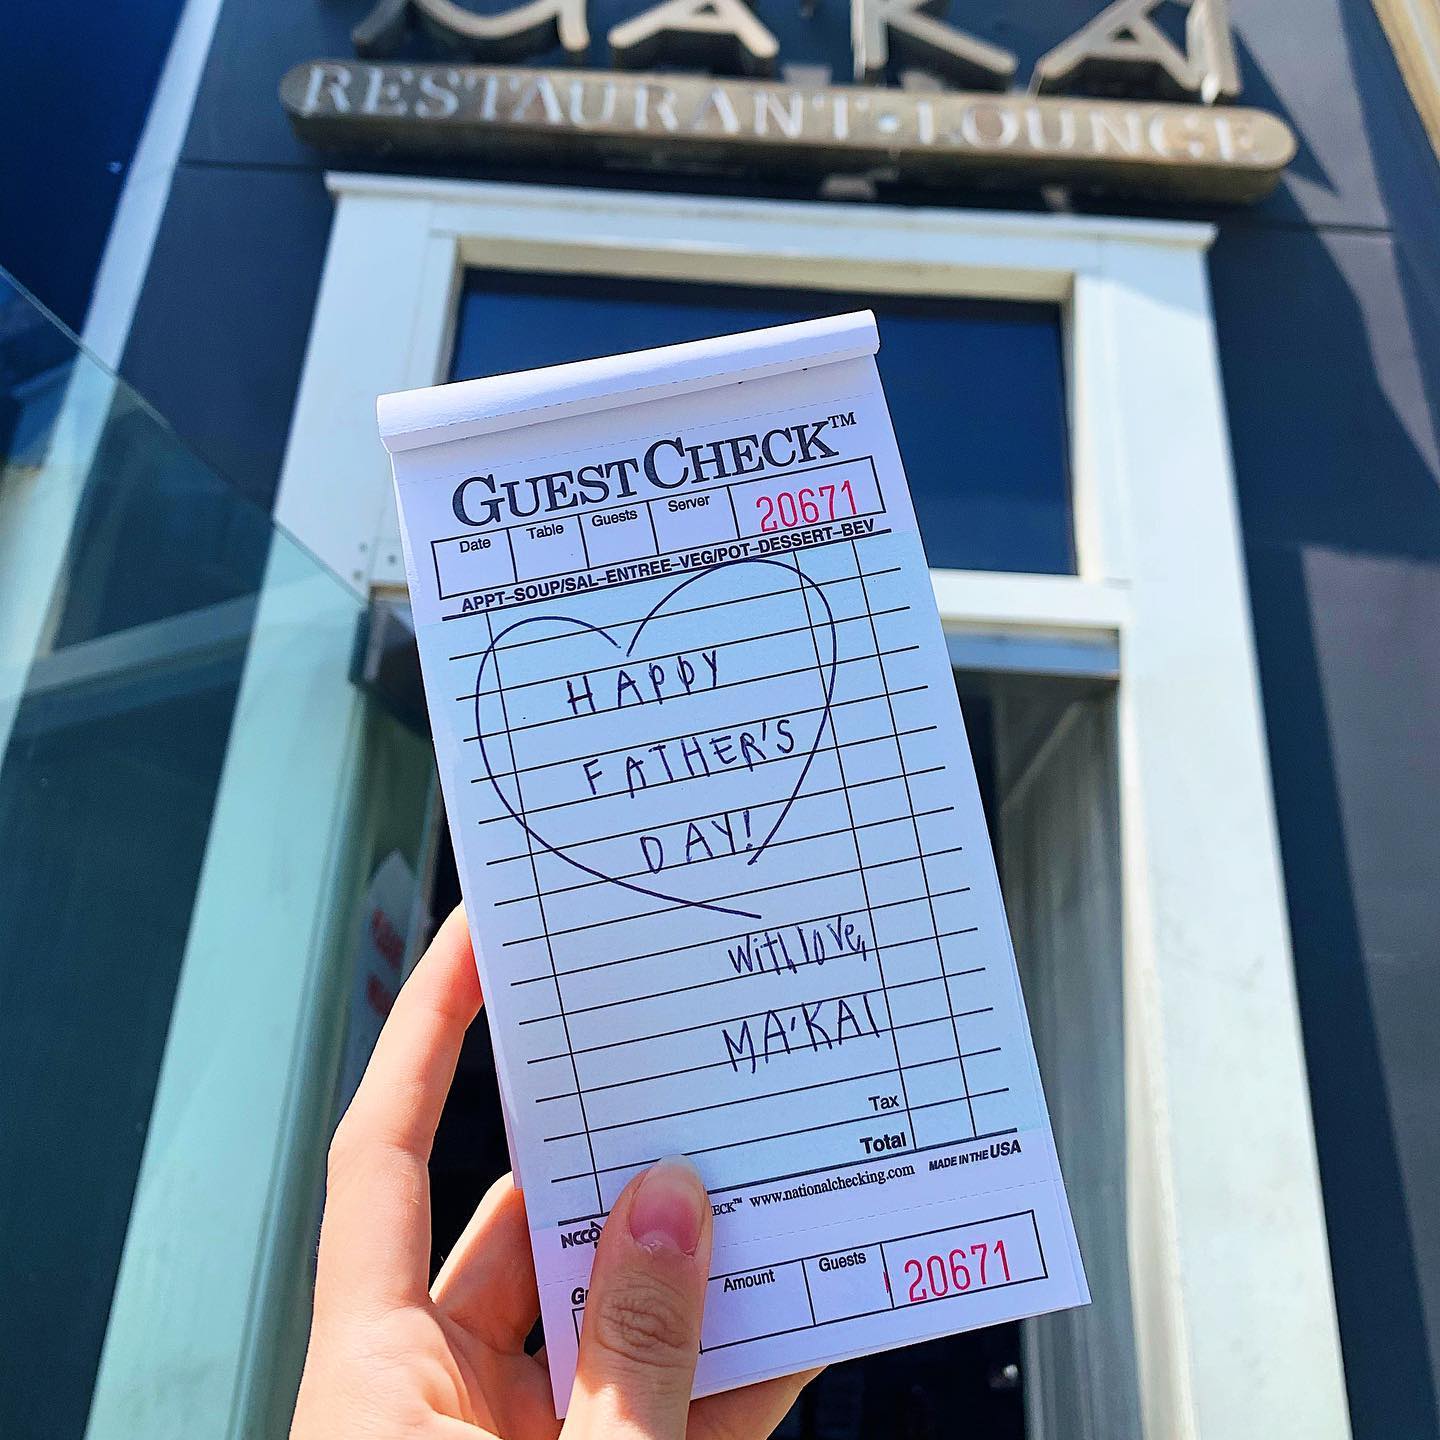 MA'KAI
RESTAURANT • LOUNGE
GUESTCHECK™
Date Table Guests Server 20671
APPT–SOUP/SAL–ENTREE–VEG/POT–DESSERT–BEV
HAPPY
FATHER'S
DAY!
with love,
MA'KAI
Tax
Total
www.nationalchecking.com MADE IN THE USA
NCCO
Amount Guests 20671